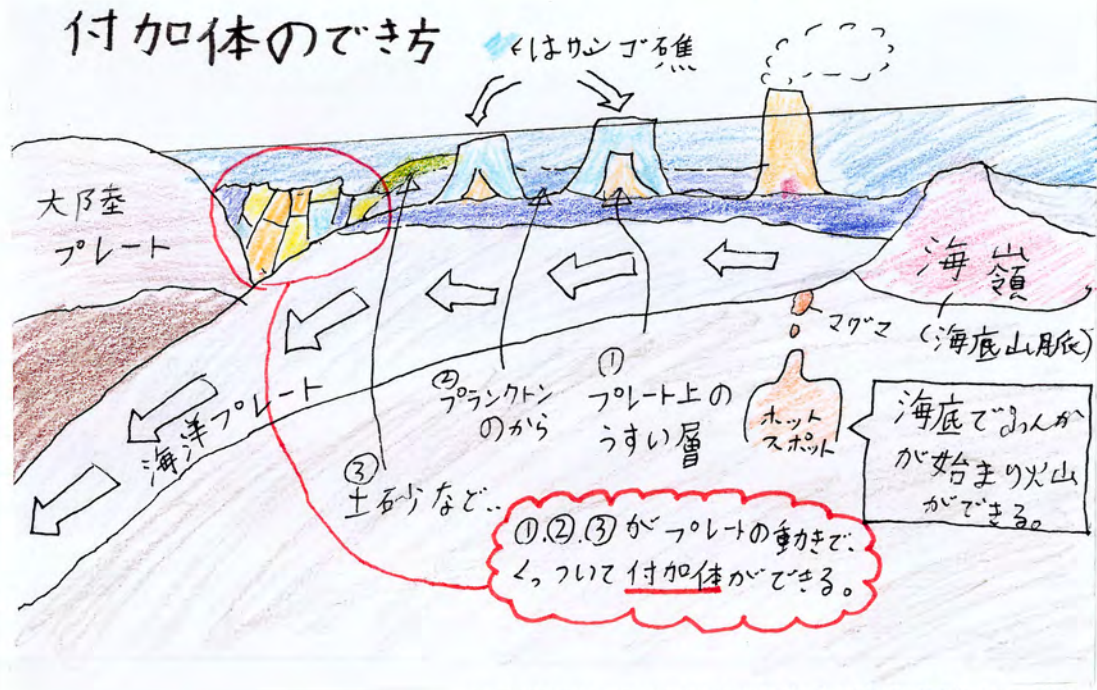 付加体のでき方
はサンゴ礁
大陸
プレート
海嶺
(海底山脈)
マグマ
ホット
スポット
海底でふんか
が始まり火山
ができる。
①
プレート上の
うすい層
②
プランクトン
のから
③
土砂など..
海洋プレート
①.②.③がプレートの動きで、
くっついて付加体ができる。